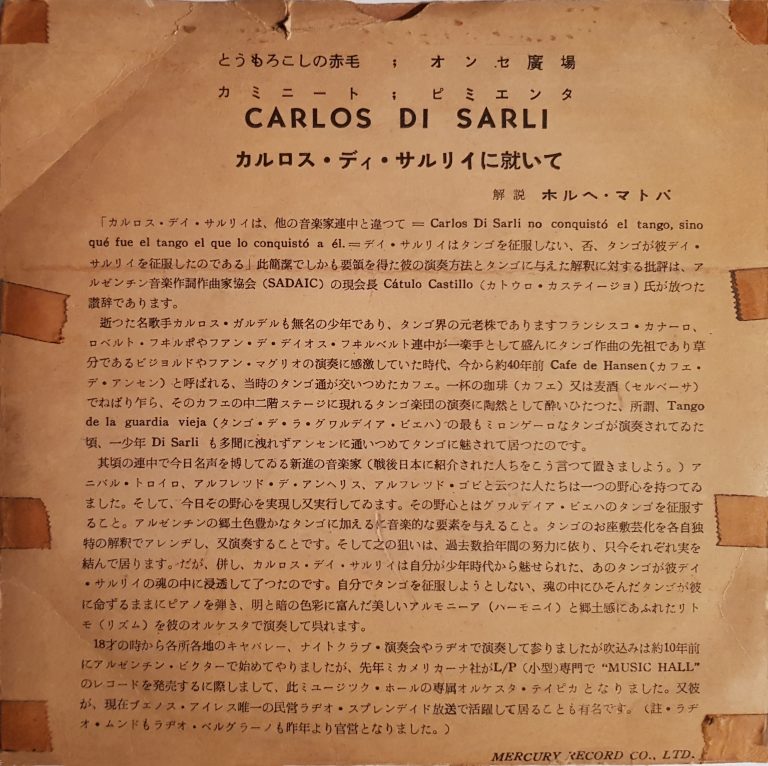 とうもろこしの赤毛 ; オンセ廣場
カミニート ; ピミエンタ
CARLOS DI SARLI
カルロス・ディ・サルリイに就いて
解説 ホルヘ・マトバ
「カルロス・デイ・サルリイは、他の音楽家連中と違つて ＝ Carlos Di Sarli no conquistó el tango, sino
qué fue el tango el que lo conquistó a él.＝デイ・サルリイはタンゴを征服しない、否、タンゴが彼デイ・
サルリイを征服したのである」此簡潔でしかも要領を得た彼の演奏方法とタンゴに与えた解釈に対する批評は、ア
ルゼンチン音楽作詞作曲家協会 (SADAIC) の現会長 Cátulo Castillo (カトウロ・カステイージョ) 氏が放つた
讃辞であります。
逝つた名歌手カルロス・ガルデルも無名の少年であり、タンゴ界の元老株でありますフランシスコ・カナーロ、
ロベルト・フヰルポやフアン・デ・デイオス・フヰルベルト連中が一楽手として盛んにタンゴ作曲の先祖であり草
分であるビジョルドやフアン・マグリオの演奏に感激していた時代、今から約40年前 Cafe de Hansen (カフェ・
デ・アンセン) と呼ばれる、当時のタンゴ通が交いつめたカフェ。一杯の珈琲 (カフェ) 又は麦酒 (セルベーサ)
でねばり乍ら、そのカフェの中二階ステージに現れるタンゴ楽団の演奏に陶然として酔いひたつた、所謂、Tango
de la guardia vieja (タンゴ・デ・ラ・グワルデイア・ビエハ) の最もミロンゲーロなタンゴが演奏されてゐた
頃、一少年 Di Sarli も多聞に洩れずアンセンに通いつめてタンゴに魅されて居つたのです。
其頃の連中で今日名声を博してゐる新進の音楽家 (戦後日本に紹介された人ちをこう言つて置きましよう。) ア
ニバル・トロイロ、アルフレツド・デ・アンヘリス、アルフレツド・ゴビと云つた人たちは一つの野心を持つてゐ
ました。そして、今日その野心を実現し又実行してゐます。その野心とはグワルデイア・ビエハのタンゴを征服す
ること。アルゼンチンの郷土色豊かなタンゴに加えるに音楽的な要素を与えること。タンゴのお座敷芸化を各自独
特の解釈でアレンヂし、又演奏することです。そして之の狙いは、過去数拾年間の努力に依り、只今それぞれ実を
結んで居ります。だが、併し、カルロス・デイ・サルリイは自分が少年時代から魅せられた、あのタンゴが彼デイ
・サルリイの魂の中に浸透して了つたのです。自分でタンゴを征服しようとしない、魂の中にひそんだタンゴが彼
に命ずるままにピアノを弾き、明と暗の色彩に富んだ美しいアルモニーア (ハーモニイ) と郷土感にあふれたリト
モ (リズム) を彼のオルケスタで演奏して呉れます。
18才の時から各所各地のキャバレー、ナイトクラブ・演奏会やラヂオで演奏して参りましたが吹込みは約10年前
にアルゼンチン・ビクターで始めてやりましたが、先年ミカメリカーナ社がL/P (小型) 専門で “MUSIC HALL”
のレコードを発売するに際しまして、此ミユージツク・ホールの専属オルケスタ・テイピカとなりました。又彼
が、現在ブエノス・アイレス唯一の民営ラヂオ・スプレンデイド放送で活躍して居ることも有名です。(註・ラヂ
オ・ムンドもラヂオ・ベルグラーノも昨年より官営となりました。)
MERCURY RECORD CO., LTD.